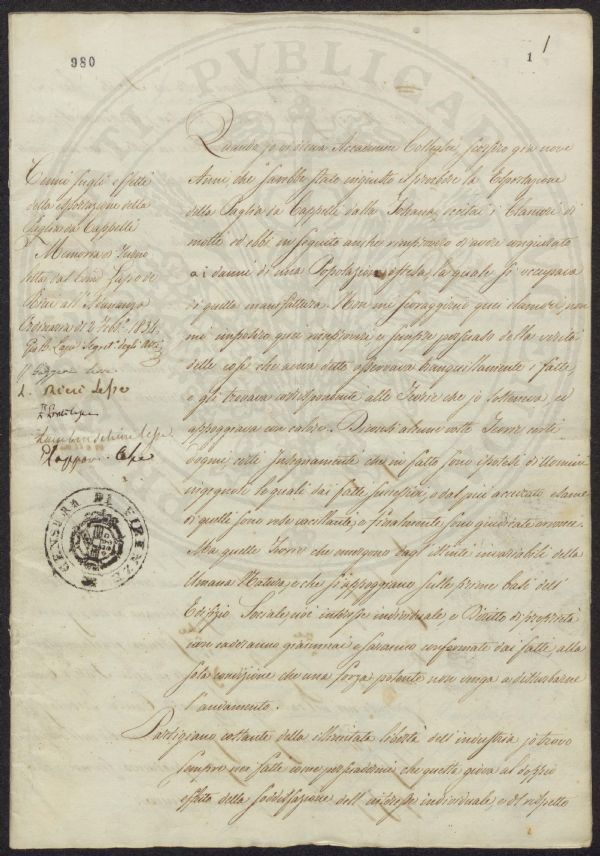 980
1
1
TI PVBLICAE
Cenni sugli effetti
della esportazione della
Paglia da Cappelli
Memoria di turno
letta dal Cons. Lapo de
Ricci all' Adunanza
Ordinaria di 2 Feb. 1834.
Segret. degli Atti
L. Ricci lesse
lesse
CENSURA DI FIRENZE
Quando jo vi dissi Accademici Colleghi, scorsero già nove
Anni, che sarebbe stato ingiusto il proibire la Esportazione
della Paglia da Cappelli dalla Toscana, eccitai i Clamori di
molti ed ebbi in seguito anche rimprovero di avere congiurato
ai danni di una Popolazione estesa, la quale si occupava
di quella manifattura. Non mi scoraggirono quei clamori, non
mi impedirono quei rimproveri e sempre persuaso della verità
delle cose che aveva dette osservava tranquillamente i fatti,
e gli trovava corrispondenti alle Teorie che jo sosteneva, ed
appoggiava con calore. Diconsi alcune volte Teorie certi
sogni certi Insegnamenti che in fatto sono ipotesi di Uomini
ingegnosi le quali dai fatti successivi, o dal più accurato esame
di quelli sono rese vacillanti, e finalmente sono giudicate erronee.
Ma quelle Teorie che emergono dagl' istinti invariabili della
Umana Natura, e che si appoggiano sulle prime basi dell'
Edifizio Sociale cioè interesse individuale, e Diritto di proprietà
non caderanno giammai e saranno confermate dai fatti alla
sola condizione che una forza potente non venga a disturbarne
l'andamento.
Partigiano costante della illimitata libertà dell'industria jo trovo
sempre nei fatti come persuadermi che questa giova al doppio
effetto della soddisfazione dell' interesse individuale, e del rispetto